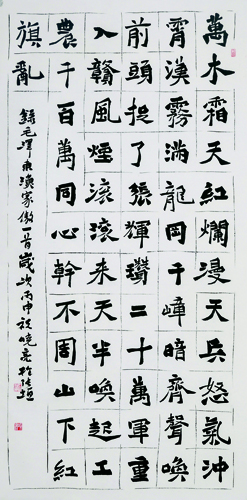 萬木霜天紅爛漫天兵怒氣沖
霄漢霧滿龍岡千嶂暗齊聲喚
前頭捉了張輝瓚二十萬軍重
入贛風煙滾滾來天半喚起工
農千百萬同心幹不周山下紅
旗亂
錄毛澤東漁家傲一首歲次丙申